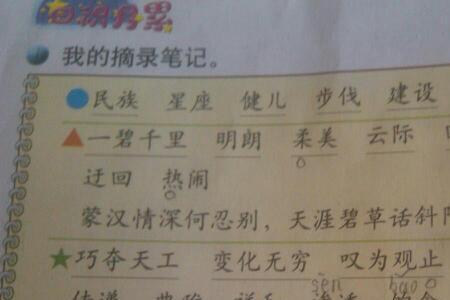 日积月累
我的摘录笔记。
民族 星座 健儿 步伐 建设
一碧千里 明朗 柔美 云际
迂回 热闹
蒙汉情深何忍别，天涯碧草话斜
巧夺天工 变化无穷 叹为观止